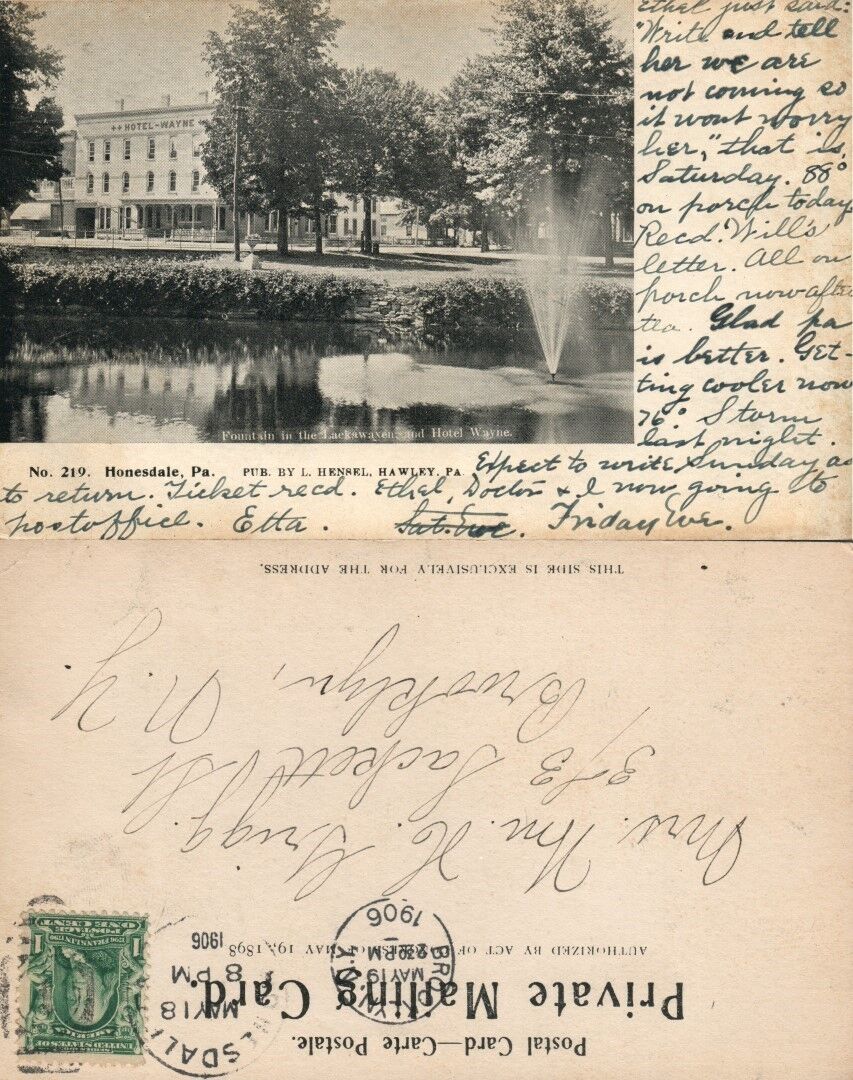 Ethel just said:
"Write and tell
her we are
not coming so
it wont worry
her," that is,
Saturday. 88°
on porch today
Recd. Will's
letter. All on
porch now after
tea. Glad pa
is better. Get-
ting cooler now
76° Storm
last night.
Expect to write Sunday as
to return. Ticket recd. Ethel, Doctor & I now going to
postoffice. Etta. Sat. Eve. Friday Eve.
++ HOTEL-WAYNE
Fountain in the Lackawaxen, and Hotel Wayne.
No. 219. Honesdale, Pa. PUB. BY L. HENSEL, HAWLEY, PA.
Postal Card—Carte Postale.
Private Mailing Card.
AUTHORIZED BY ACT OF CONGRESS OF MAY 19, 1898
HONESDALE
MAY 18
8 PM
1906
BROOKLYN, N.Y.
MAY 19
2-30PM
1906
UNITED STATES OF AMERICA
1706 FRANKLIN 1790
POSTAGE
1 ONE CENT 1
Mrs. Wm. H. Grigg.
Sackett St
Brooklyn,
N.Y.
THIS SIDE IS EXCLUSIVELY FOR THE ADDRESS.